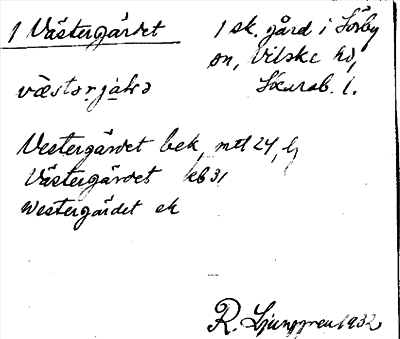 1 Västergärdet
1 sk. gård i Sörby
sn, Vilske hd,
Skarab. l.
væstərjaḷɩə
Vestergärdet bek, mtl 24,
Västergärdet kb 31
Westergärdet ek
R. Ljunggren 1932